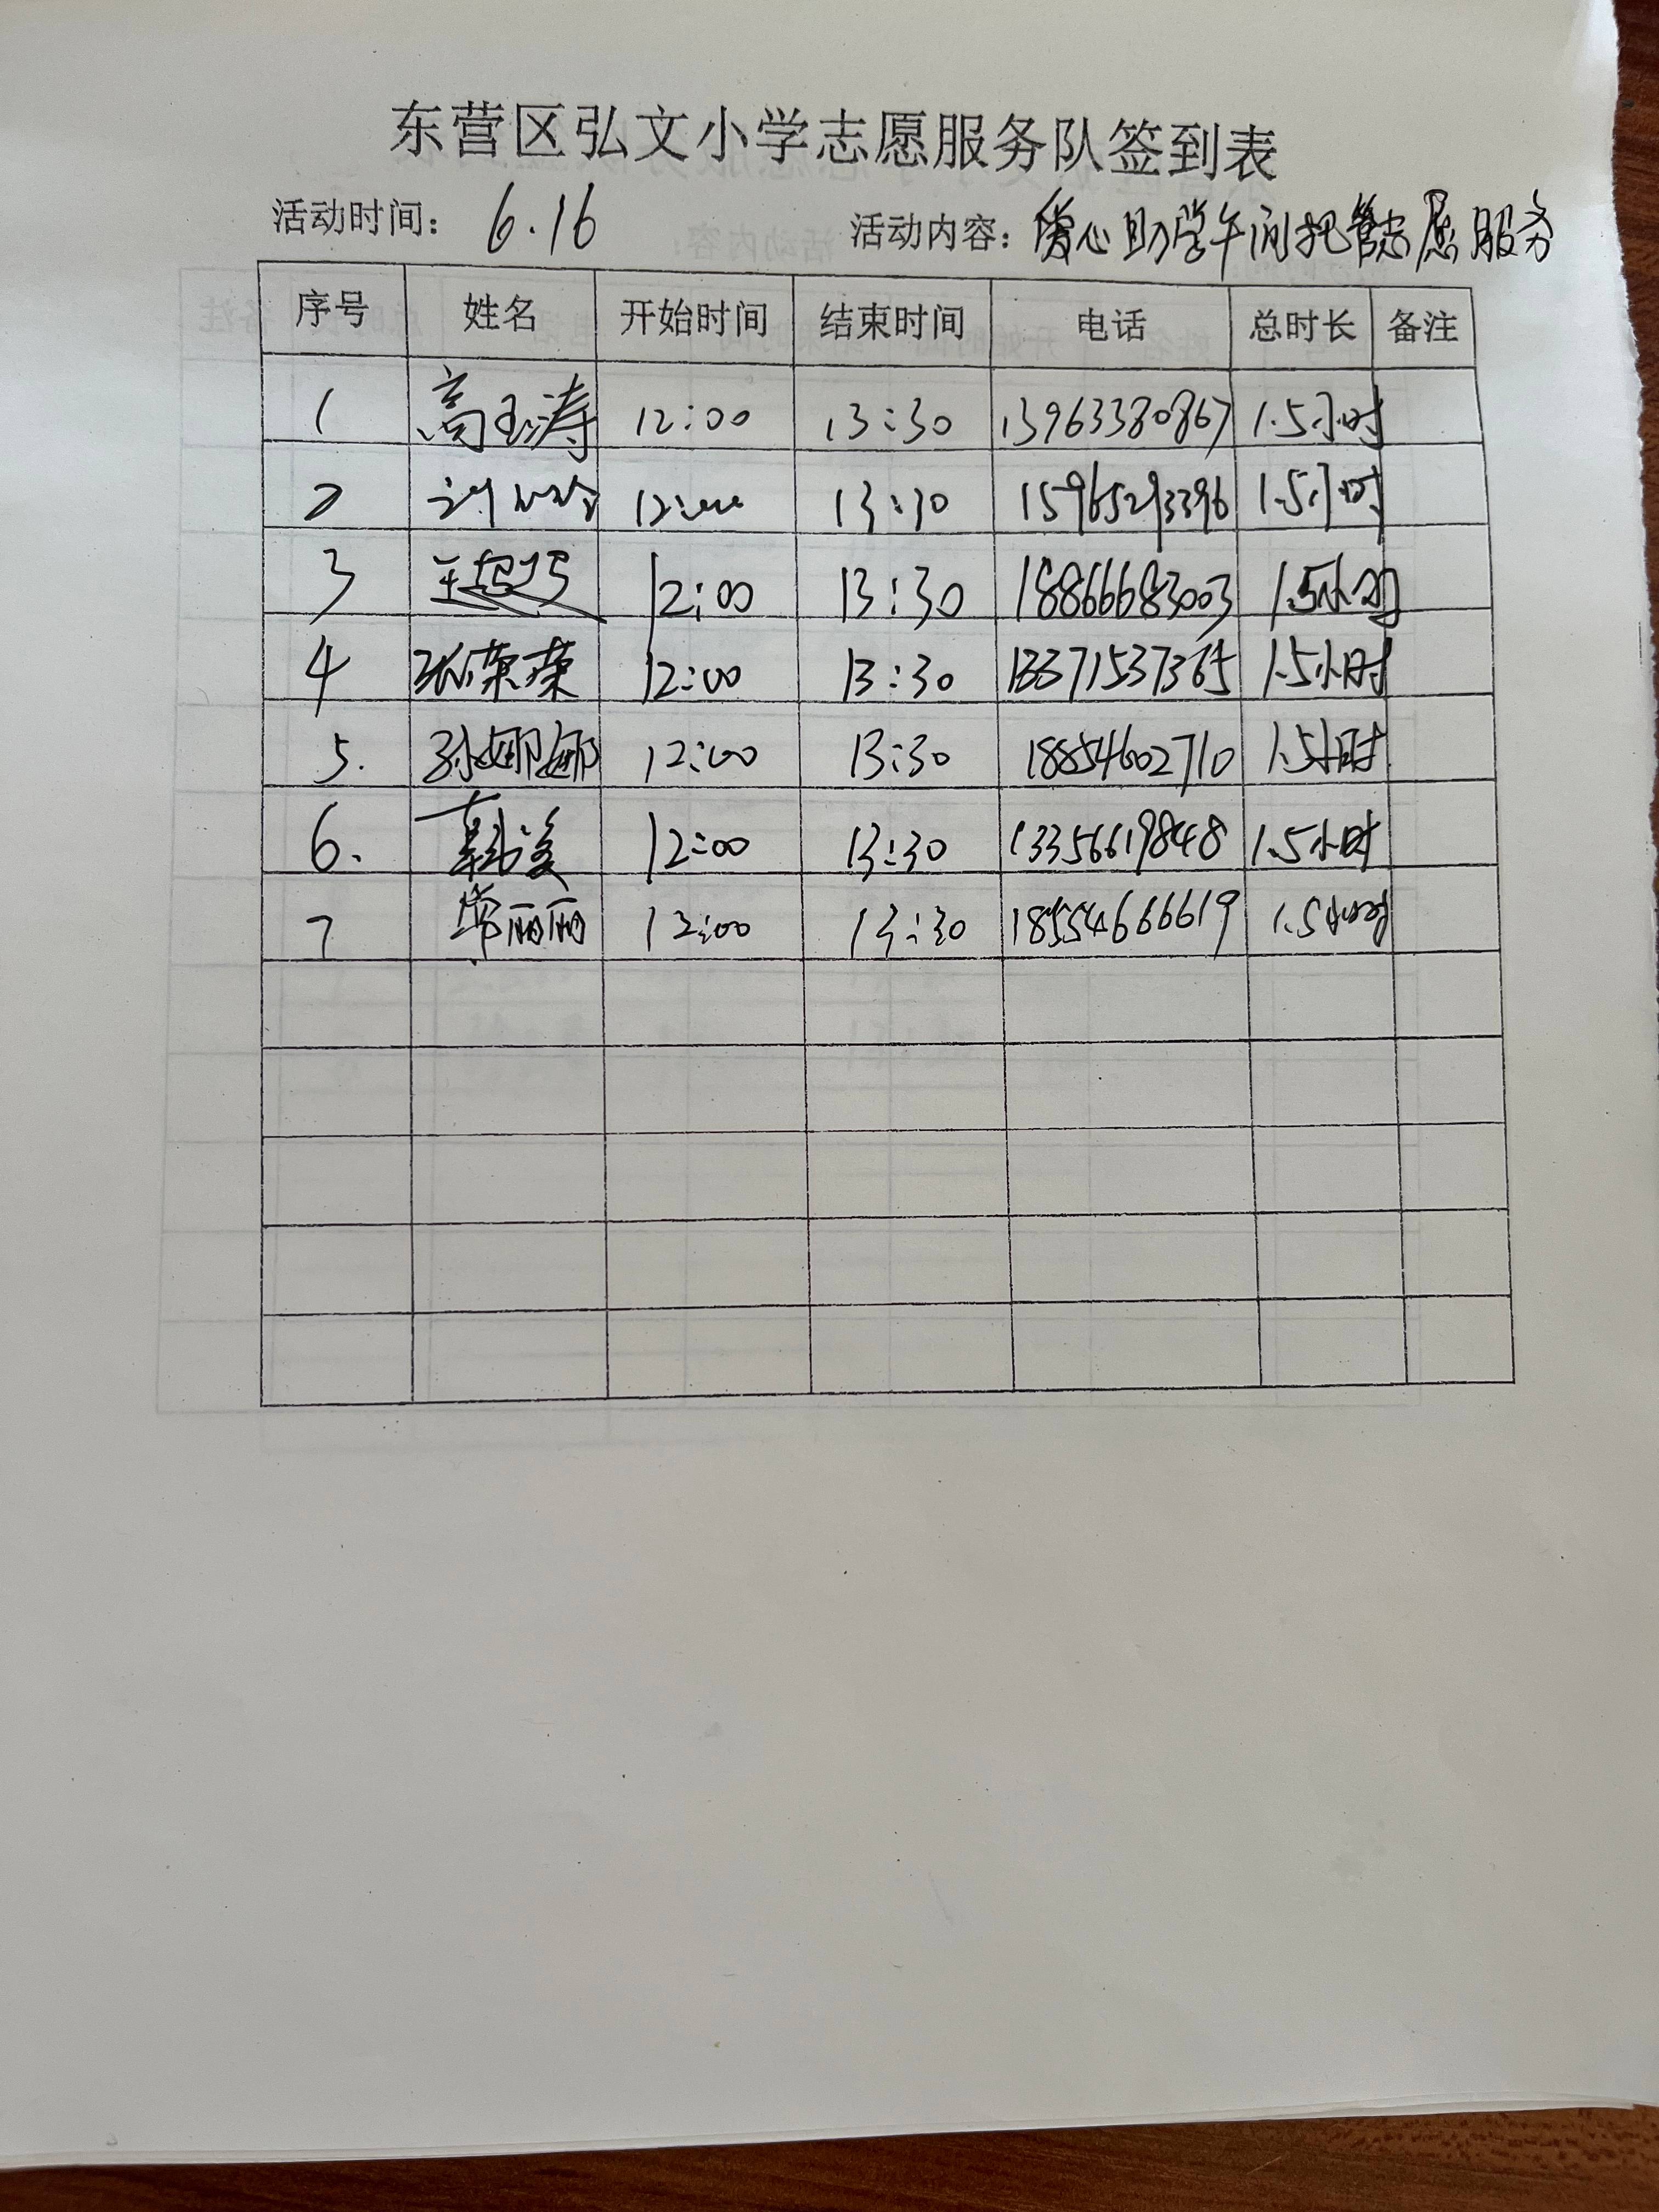 东营区弘文小学志愿服务队签到表
活动时间： 6.16 活动内容：爱心助学午间托管志愿服务
序号 姓名 开始时间 结束时间 电话 总时长 备注
1 高玉涛 12:00 13:30 13963380867 1.5小时
2 12:00 13:30 15965293396 1.5小时
3 12:00 13:30 18866683003 1.5小时
4 张荣荣 12:00 13:30 13371537365 1.5小时
5. 孙娜娜 12:00 13:30 18854602710 1.5小时
6. 12:00 13:30 13356619848 1.5小时
7 常丽丽 12:00 13:30 18554666619 1.5小时